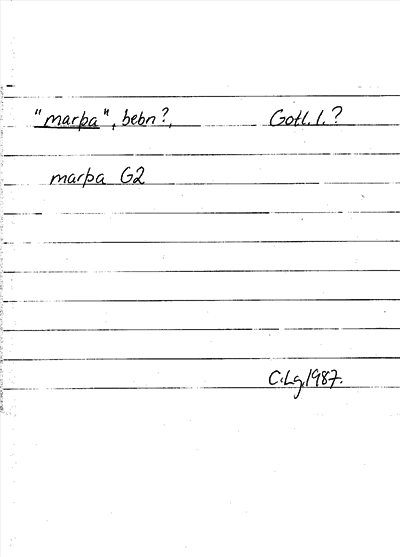 "marþa", bebn?, Gotl. l.?
marþa G2
C.Lg. 1987.